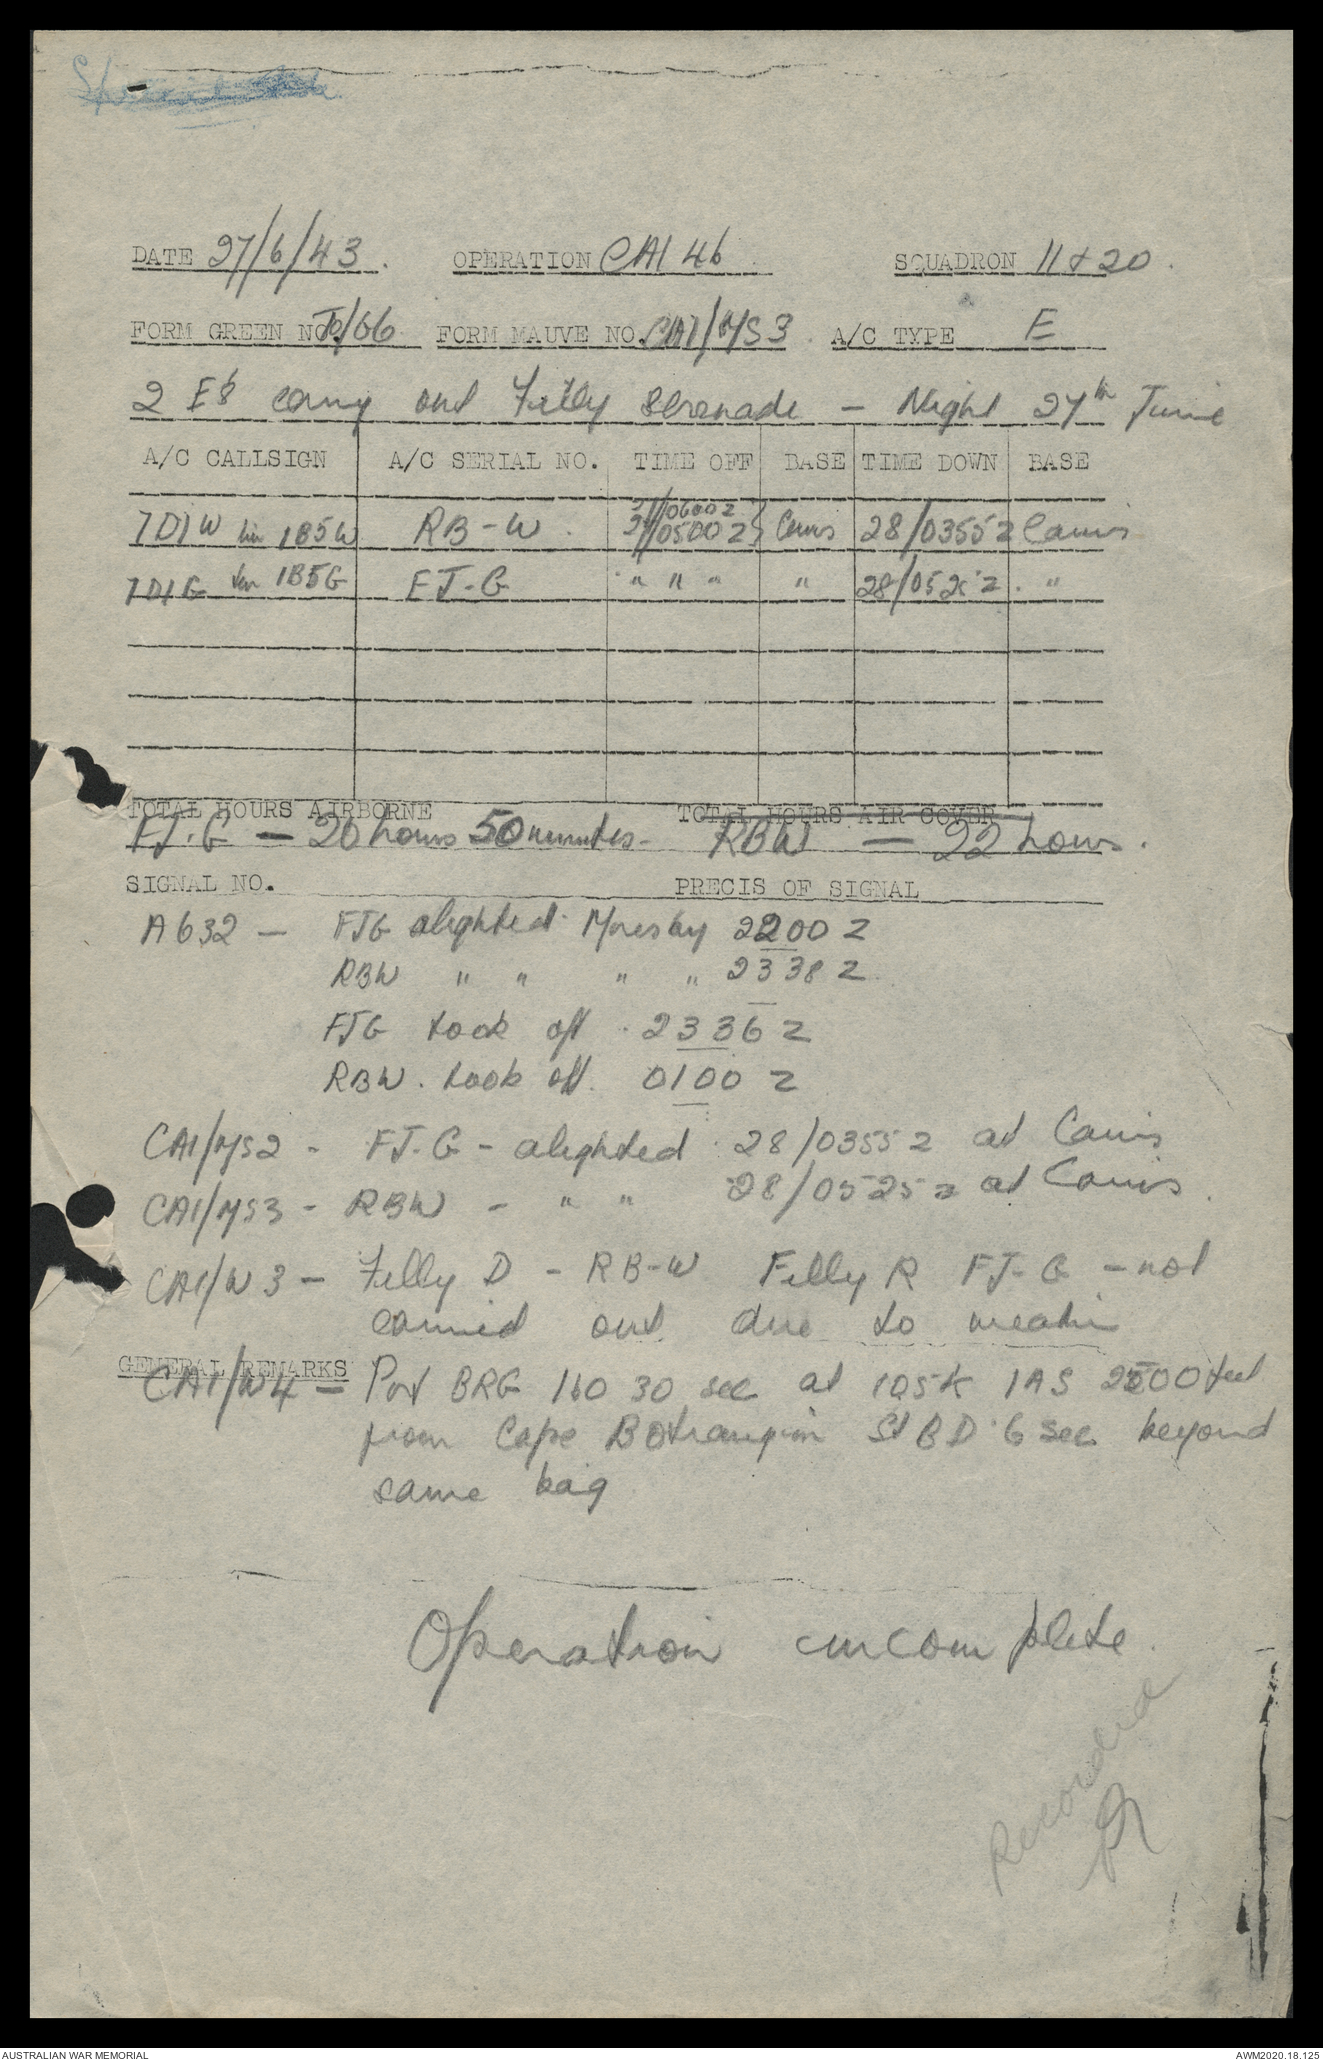 DATE 27/6/43. OPERATION CAI 46 SQUADRON 11 & 20.
FORM GREEN NO. /66 FORM MAUVE NO. CAI/MS3 A/C TYPE E
2 E's carry out Filly Serenade - Night 27th June
A/C CALLSIGN A/C SERIAL NO. TIME OFF BASE TIME DOWN BASE
27/0600Z
7D1W 1B5W RB-W. 27/0500Z } Cairns 28/0355Z Cairns
7D1G 1B5G FJ-G " " " " 28/0525Z. "
TOTAL HOURS AIRBORNE TOTAL HOURS AIR COVER
FJ.G - 20 hours 50 minutes- RBW - 22 hours.
SIGNAL NO. PRECIS OF SIGNAL
A632 - FJG alighted Moresby 2200Z
RBW " " " " 2338Z
FJG took off 2336Z
RBW. took off. 0100Z
CAI/MS2 - FJ.G - alighted 28/0355Z at Cairns
CAI/MS3 - RBW - " " 28/0525Z at Cairns.
CAI/W3 - Filly D - RB-W Filly R FJ-G - not
carried out due to weather
GENERAL REMARKS
CAI/W4 - Port BRG 160 30 sec at 105K IAS 2500 feet
from Cape STBD 6 sec beyond
same
Operation incomplete.
Recorded